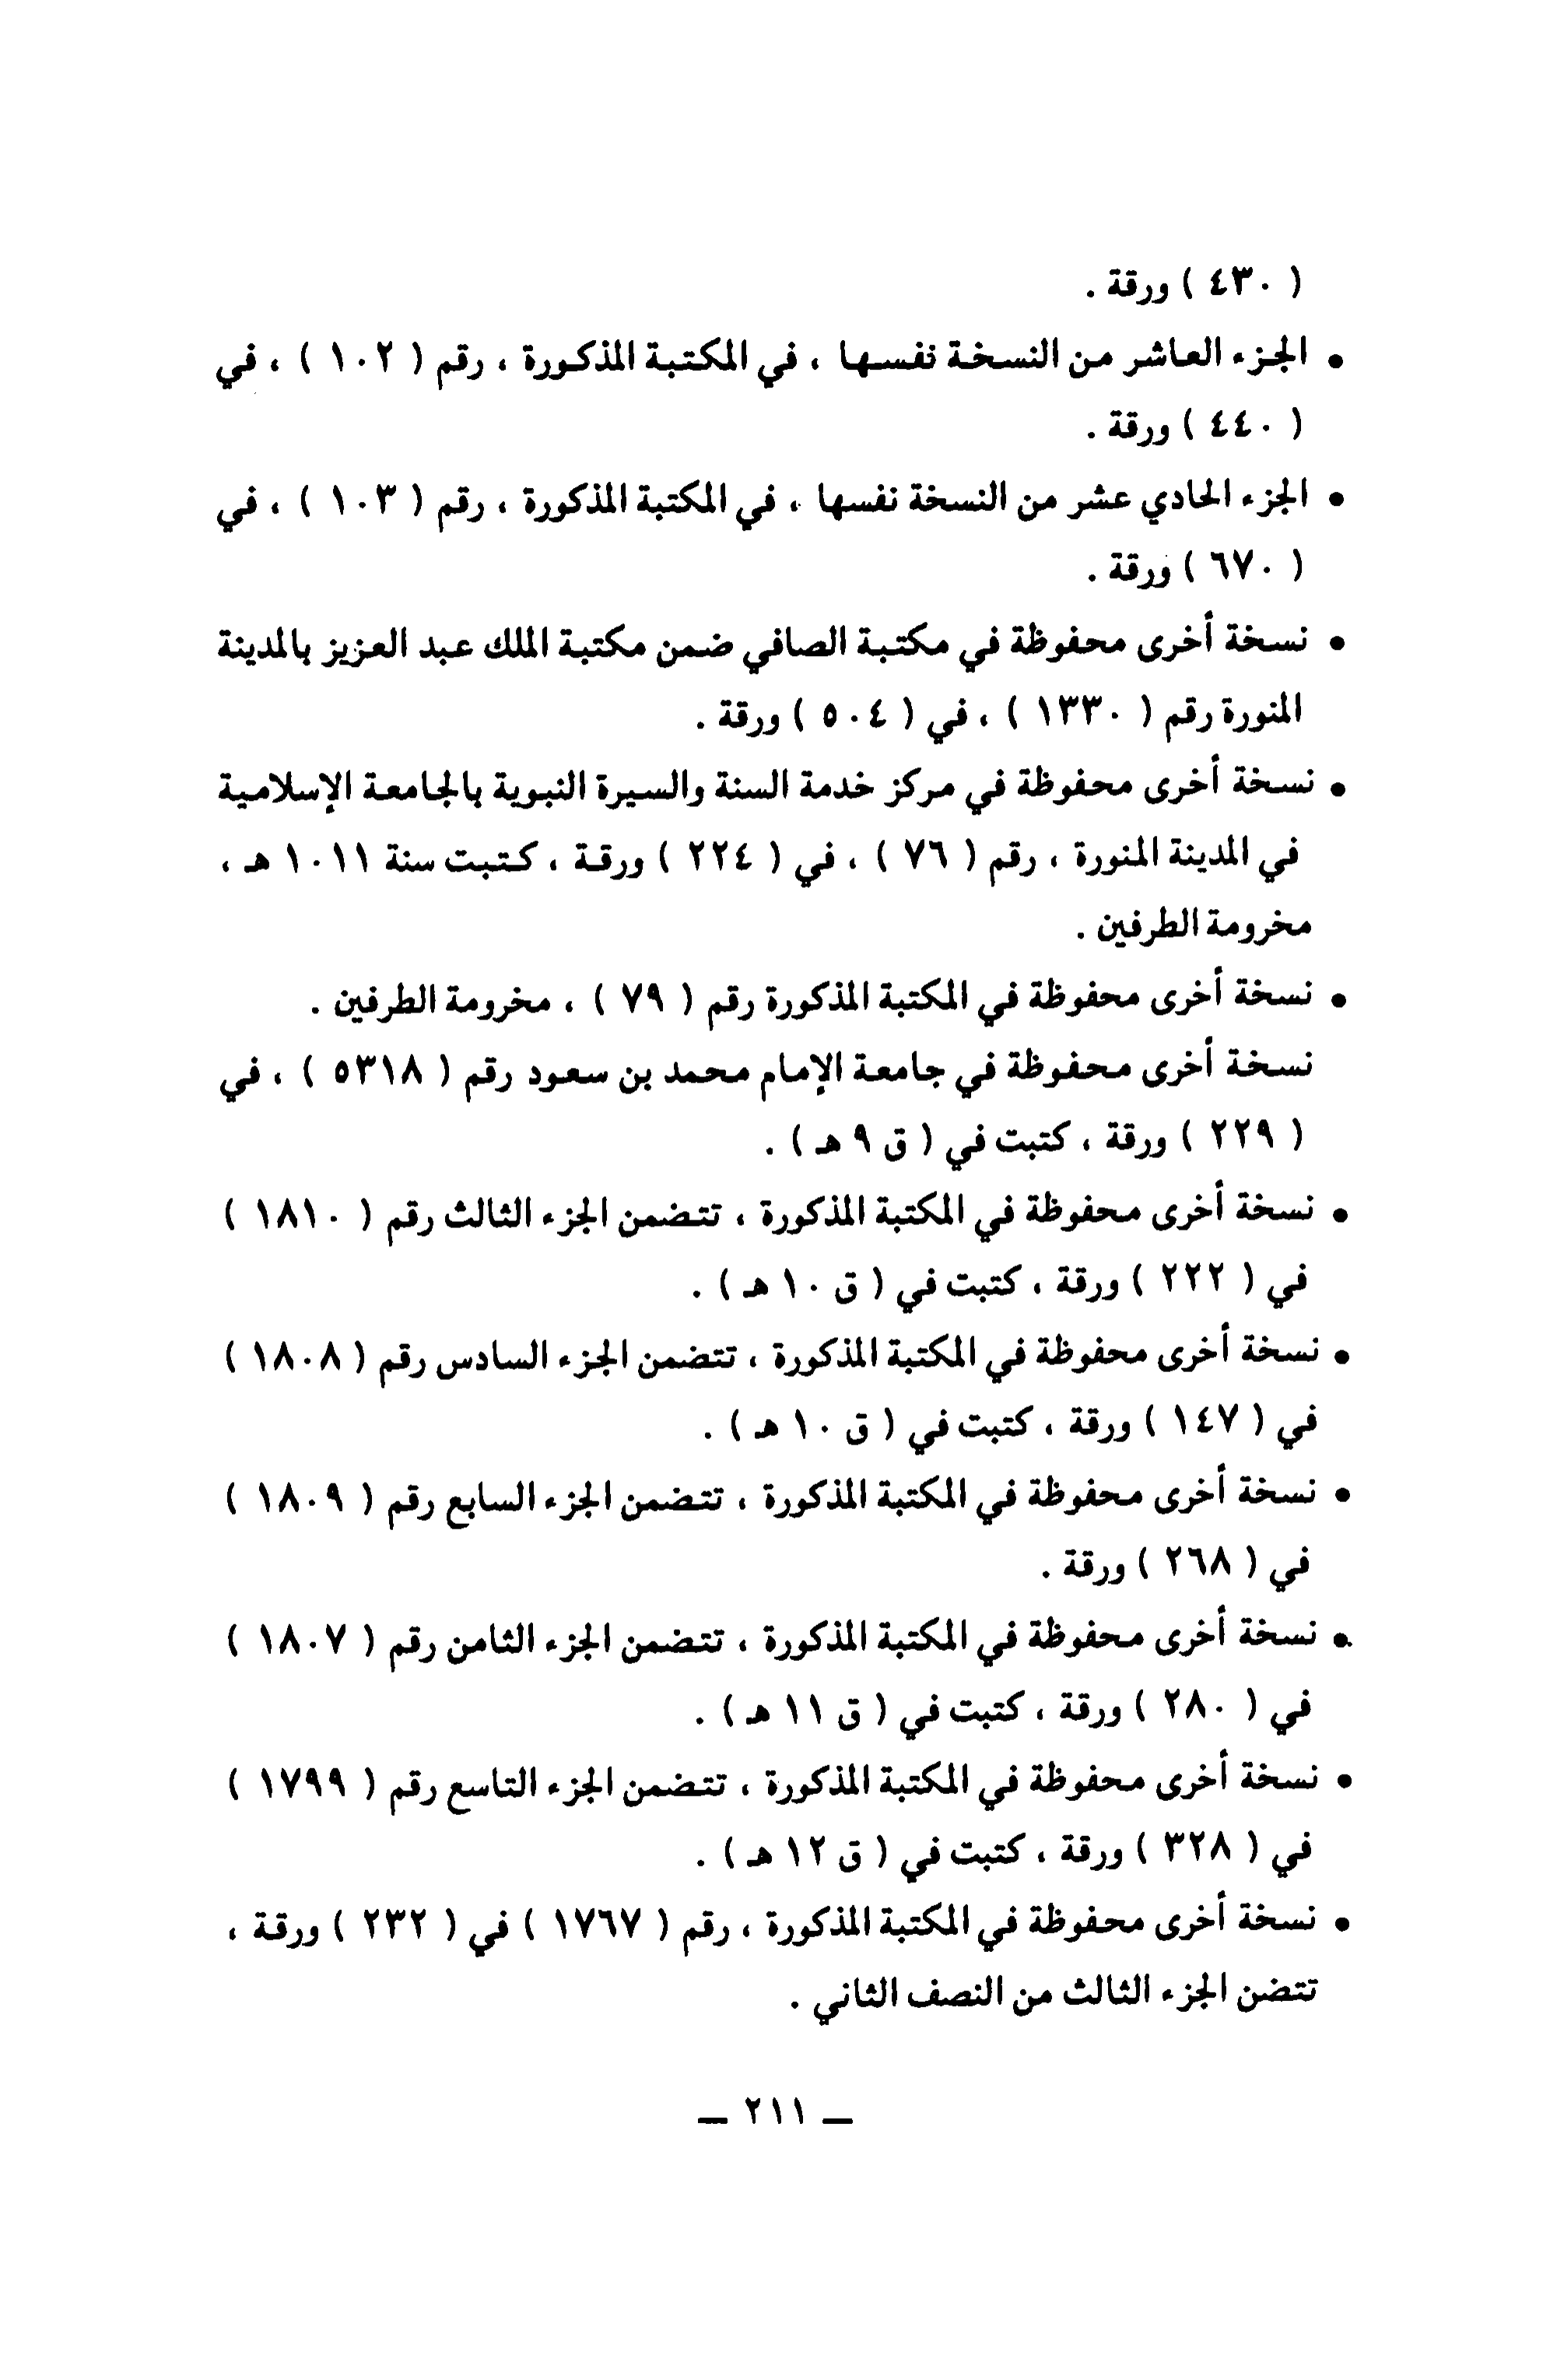 ( ٤٣٠ ) ورقة .
● الجزء العاشر من النسخة نفسها ، في المكتبة المذكورة ، رقم ( ١٠٢ ) ، في
( ٤٤٠ ) ورقة .
● الجزء الحادي عشر من النسخة نفسها ، في المكتبة المذكورة ، رقم ( ١٠٣ ) ، في
( ٦٧٠ ) ورقة .
● نسخة أخرى محفوظة في مكتبة الصافي ضمن مكتبة الملك عبد العزيز بالمدينة
المنورة رقم ( ١٣٣٠ ) ، في ( ٥٠٤ ) ورقة .
● نسخة أخرى محفوظة في مركز خدمة السنة والسيرة النبوية بالجامعة الإسلامية
في المدينة المنورة ، رقم ( ٧٦ ) ، في ( ٢٢٤ ) ورقة ، كتبت سنة ١٠١١ هـ ،
مخرومة الطرفين .
● نسخة أخرى محفوظة في المكتبة المذكورة رقم ( ٧٩ ) ، مخرومة الطرفين .
نسخة أخرى محفوظة في جامعة الإمام محمد بن سعود رقم ( ٥٣١٨ ) ، في
( ٢٢٩ ) ورقة ، كتبت في ( ق ٩ هـ ) .
● نسخة أخرى محفوظة في المكتبة المذكورة ، تتضمن الجزء الثالث رقم ( ١٨١٠ )
في ( ٢٢٢ ) ورقة ، كتبت في ( ق ١٠ هـ ) .
● نسخة أخرى محفوظة في المكتبة المذكورة ، تتضمن الجزء السادس رقم ( ١٨٠٨ )
في ( ١٤٧ ) ورقة ، كتبت في ( ق ١٠ هـ ) .
● نسخة أخرى محفوظة في المكتبة المذكورة ، تتضمن الجزء السابع رقم ( ١٨٠٩ )
في ( ٢٦٨ ) ورقة .
● نسخة أخرى محفوظة في المكتبة المذكورة ، تتضمن الجزء الثامن رقم ( ١٨٠٧ )
في ( ٢٨٠ ) ورقة ، كتبت في ( ق ١١ هـ ) .
● نسخة أخرى محفوظة في المكتبة المذكورة ، تتضمن الجزء التاسع رقم ( ١٧٩٩ )
في ( ٣٢٨ ) ورقة ، كتبت في ( ق ١٢ هـ ) .
● نسخة أخرى محفوظة في المكتبة المذكورة ، رقم ( ١٧٦٧ ) في ( ٢٣٢ ) ورقة ،
تتضن الجزء الثالث من النصف الثاني .
— ٢١١ —